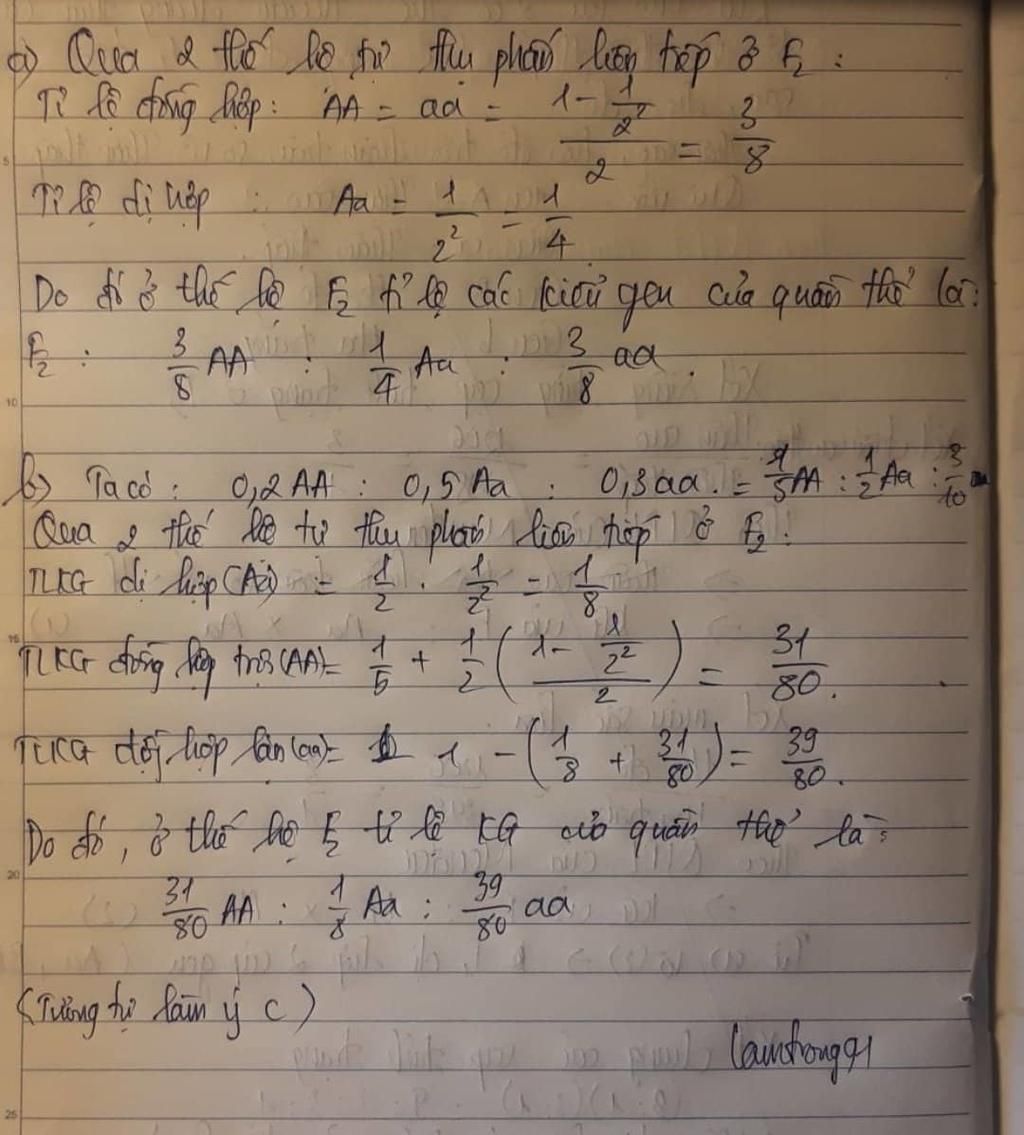 a) Qua 2 thế hệ tự thụ phấn liên tiếp ở F₂ :
Tỉ lệ đồng hợp: AA = aa = (1 - 1/2²)/2 = 3/8
Tỉ lệ dị hợp : Aa = 1/2² = 1/4
Do đó ở thế hệ F₂ tỉ lệ các kiểu gen của quần thể là:
F₂ : 3/8 AA : 1/4 Aa : 3/8 aa.
b) Ta có : 0,2AA : 0,5Aa : 0,3aa. = 1/5AA : 1/2Aa : 3/10
Qua 2 thế hệ tự thụ phấn liên tiếp ở F₂:
TLKG dị hợp(Aa) = 1/2 . 1/2² = 1/8
TLKG đồng hợp trội(AA)= 1/5 + 1/2 ((1 - 1/2²)/2) = 31/80.
TLKG đồng hợp lặn(aa)= 1 - (1/8 + 31/80) = 39/80.
Do đó, ở thế hệ F₂ tỉ lệ KG của quần thể là:
31/80 AA : 1/8 Aa : 39/80 aa
(Tương tự làm ý c)
lamtrong91